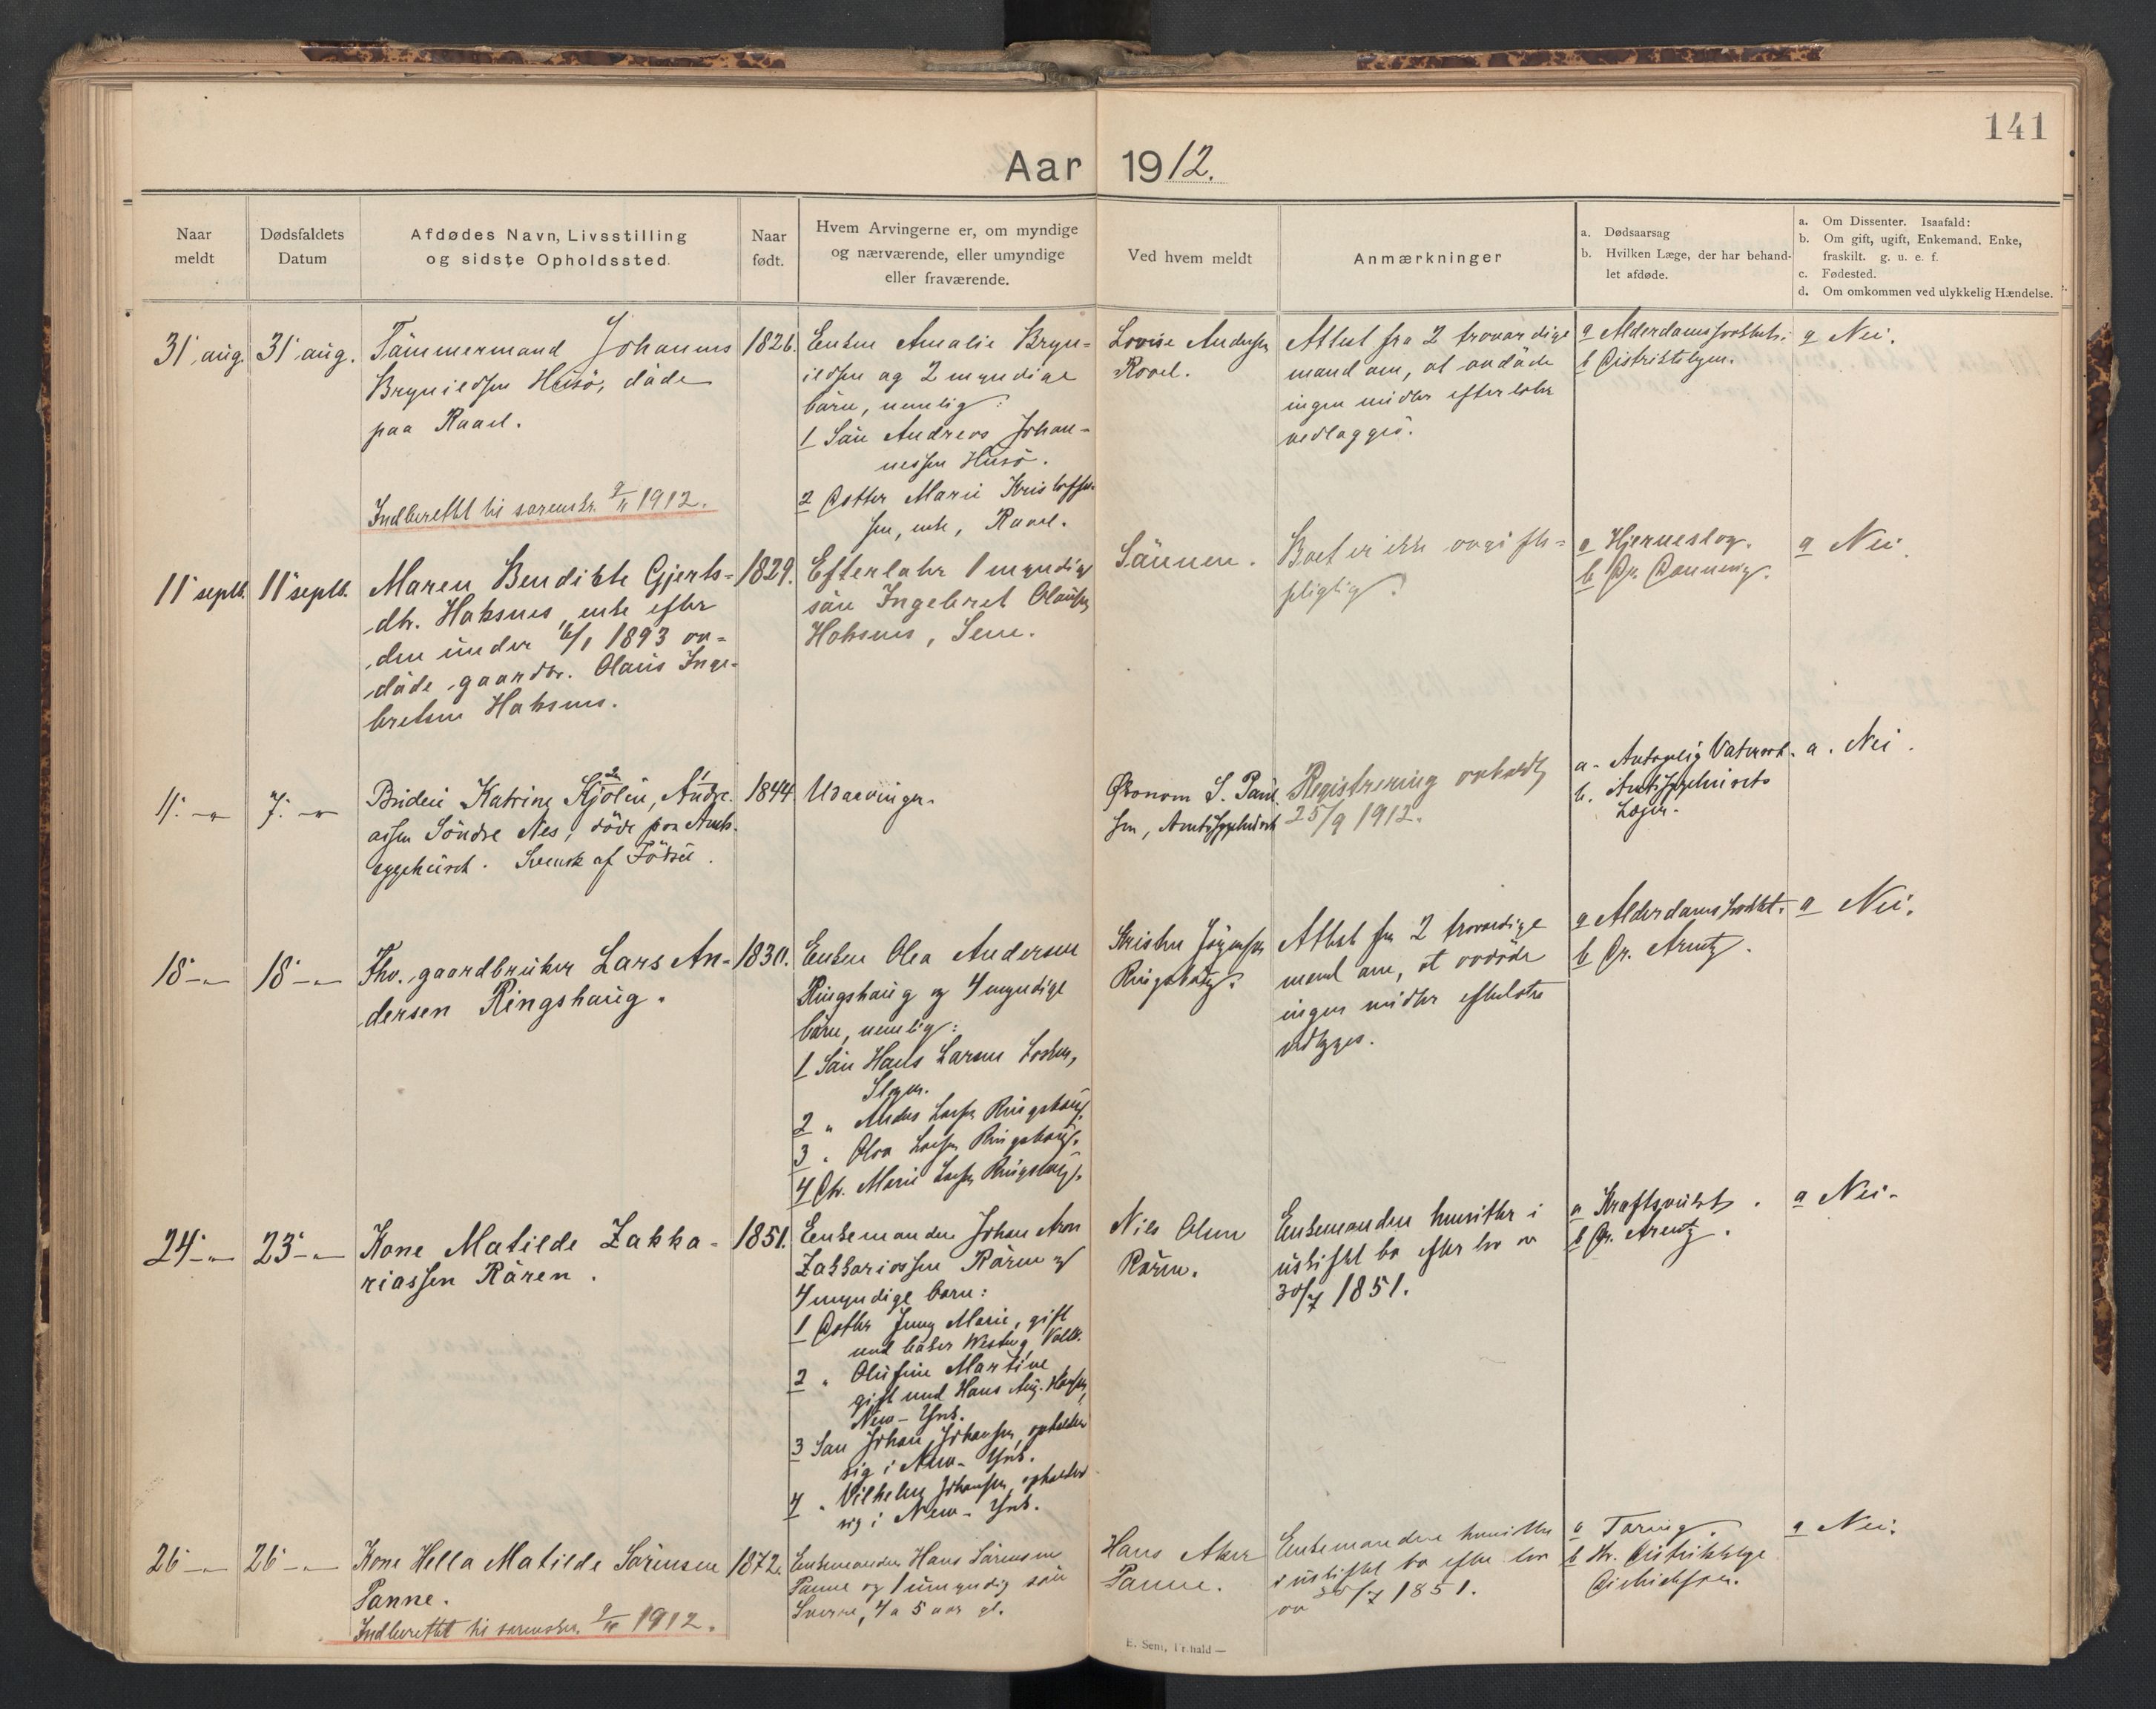 141
Aar 1912.
Naar meldt
Dødsfaldets Datum
Afdødes Navn, Livsstilling
og sidste Opholdssted.
Naar født.
Hvem Arvingerne er, om myndige
og nærværende, eller umyndige
eller fraværende.
Ved hvem meldt
Anmærkninger
a. Dødsaarsag
b. Hvilken Læge, der har behand-
let afdøde.
a. Om Dissenter. Isaafald:
b. Om gift, ugift, Enkemand. Enke,
fraskilt. g. u. e. f.
c. Fødested.
d. Om omkommen ved ulykkelig Hændelse.
31 aug.
31 aug.
Tömmermand Johannes
Brynildsen Husö, döde
paa Raael.
Indberettet til sorenskr. 9/11 1912.
1826.
Enken Amalie Bryn-
ildsen og 2 myndige
börn, nemlig:
1 Sön Andreas Johan-
nessen Husö.
2 Datter Marie Kristoffer-
sen, enke, Raael.
Lovise Andersen
Raael.
Attest fra 2 troværdige
mænd om, at avdöde
ingen midler efterlot
vedlægges.
a Alderdomssvakhet.
b Distriktslægen.
a Nei.
11 septb.
11 septb.
Maren Bendikte Gjerts-
dtr. Haksnes, enke efter
den under 16/1 1893 av-
döde gaardbr. Olaus Inge-
bretsen Haksnes.
1829.
Efterlater 1 myndig
sön Ingebret Olausen
Haksnes, Sem.
Sönnen.
Boet er ikke avgifts-
pligtig.
a Hjerneslag.
b Dr.
a Nei.
11.
7.
Katrine Andre-
assen Söndre Nes, döde paa Amts-
sygehuset. Svensk af Födsel.
1844
Udarvinger.
Økonom S. Paul-
sen, Amtssygehuset
Registrering avholdt
25/9 1912.
a.
b. Amtssygehusets
Læger.
a. Nei.
18
18
Fhv. gaardbruker Lars An-
dersen Ringshaug.
1830.
Enken Olea Andersen
Ringshaug og 4 myndige
börn, nemlig:
1 Sön Hans Larsen
Slagen.
2 " Anders Larsen Ringshaug.
3 " Larsen Ringshaug.
4 Dtr. Marie Larsen Ringshaug.
Kristen Jörgensen
Ringshaug.
Attest fra 2 troværdige
mænd om, at avdöde
ingen midler efterlot
vedlægges.
a Alderdomssvakhet.
b Dr. Arentz.
a Nei.
24
23
Kone Matilde Zakka-
riassen Rören.
1851.
Enkemanden Johan Aron
Zakkariassen Rören og
4 myndige barn:
1 Datter Jenny Marie, gift
med baker Westby, Vallö.
2 " Olufine Martine
gift med Hans Aug. Hansen,
New-York.
3 Sön Johan Johansen, opholder
sig i New-York.
4 " Vilhelm Johansen, opholder
sig i New-York.
Nils Olsen
Rören.
Enkemanden hensitter i
uskiftet bo efter lov av
30/7 1851.
a Kraftsvulst.
b Dr. Arentz.
a Nei.
26
26
Kone Hella Matilde Sörensen
Tanne.
Indberettet til sorenskr. 9/11 1912.
1872.
Enkemanden Hans Sörensen
Tanne og 1 umyndig sön
Sverre, 4 a 5 aar gl.
Hans Aker
Tanne.
Enkemanden hensitter
i uskiftet bo efter lov
av 30/7 1851.
a Tæring.
b Hr. Distriktslæge
a Nei.
E. Sem, Fr.hald —